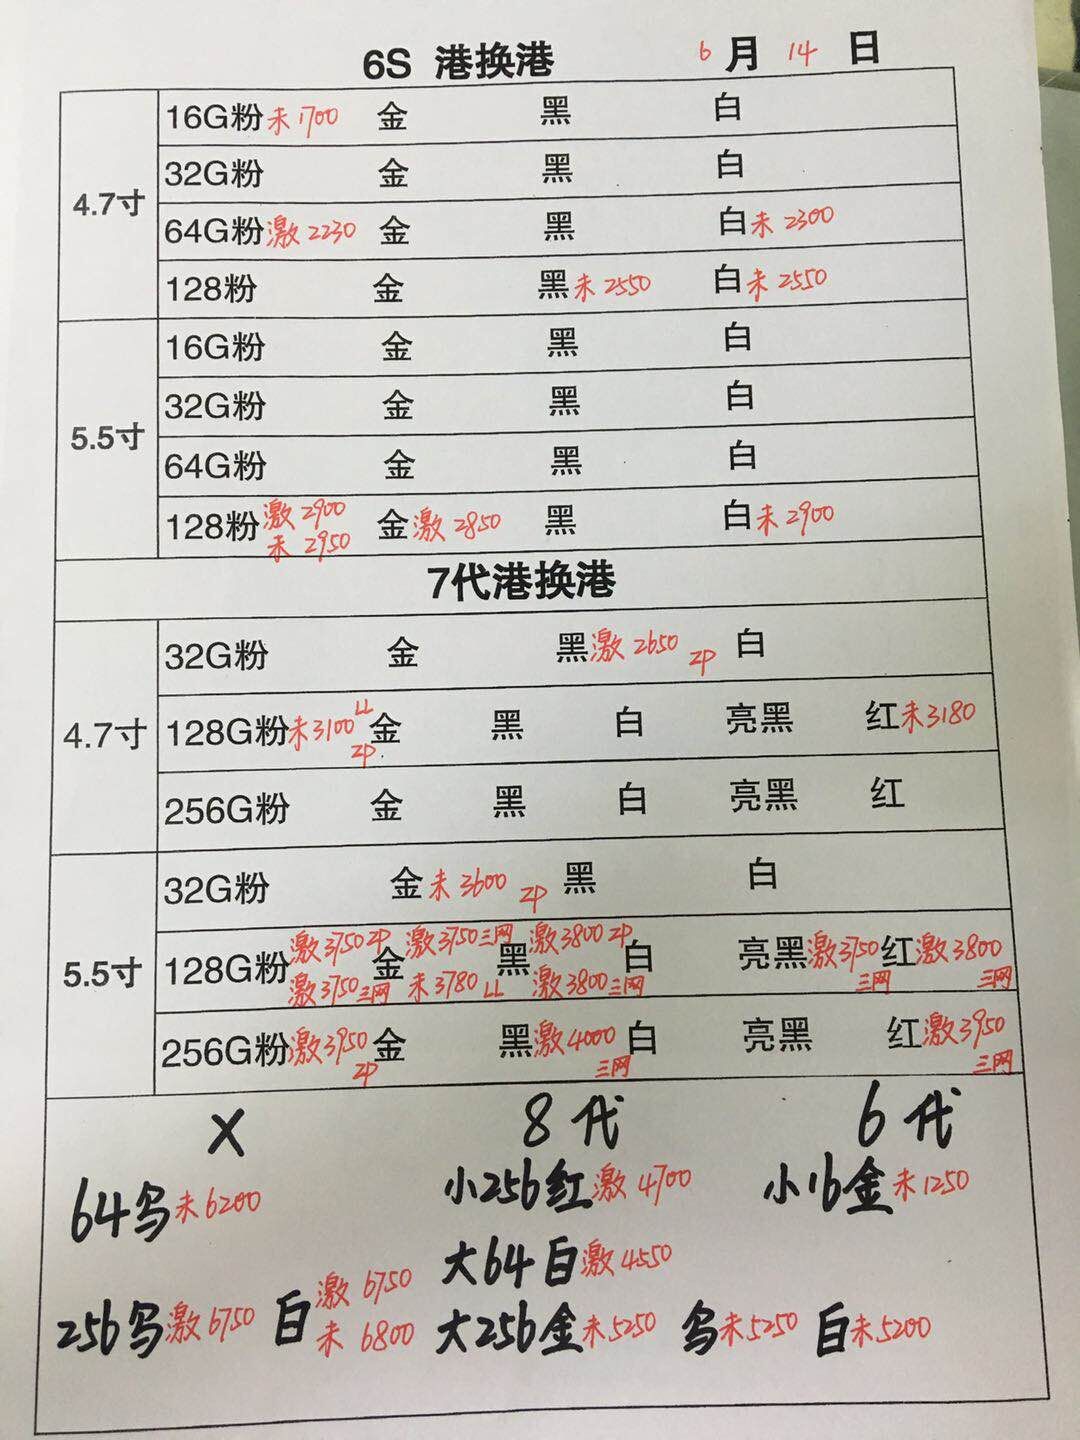 6S 港换港 6月14日
4.7寸
16G粉未1700 金 黑 白
32G粉 金 黑 白
64G粉激2230 金 黑 白未2300
128粉 金 黑未2550 白未2550
5.5寸
16G粉 金 黑 白
32G粉 金 黑 白
64G粉 金 黑 白
128粉激2900 未2950 金激2850 黑 白未2900
7代港换港
4.7寸
32G粉 金 黑激2650 ZP 白
128G粉未3100 LL ZP 金 黑 白 亮黑 红未3180
256G粉 金 黑 白 亮黑 红
5.5寸
32G粉 金未3600 ZP 黑 白
128G粉激3750ZP 激3750三网 金激3750三网 未3780LL 黑激3800ZP 激3800三网 白 亮黑激3750三网 红激3800三网
256G粉激3950ZP 金 黑激4000三网 白 亮黑 红激3950三网
X 8代 6代
64乌未6200 小256红激4700 小16金未1250
大64白激4550
256乌激6750 白激6750 未6800 大256金未5250 乌未5250 白未5200